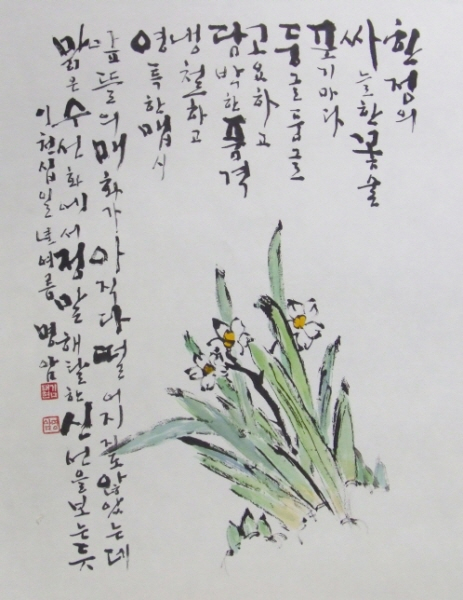 한점의
싸늘한 봄술
포기마다
둥글둥글
고요하고
담박한 품격
냉철하고
영특한 맵시
뜰의 매화가 아직 다 떨어지지도 않았는데
맑은 수선화에서 정말 해탈한 신선을 보는듯
이천십일년 여름 명암